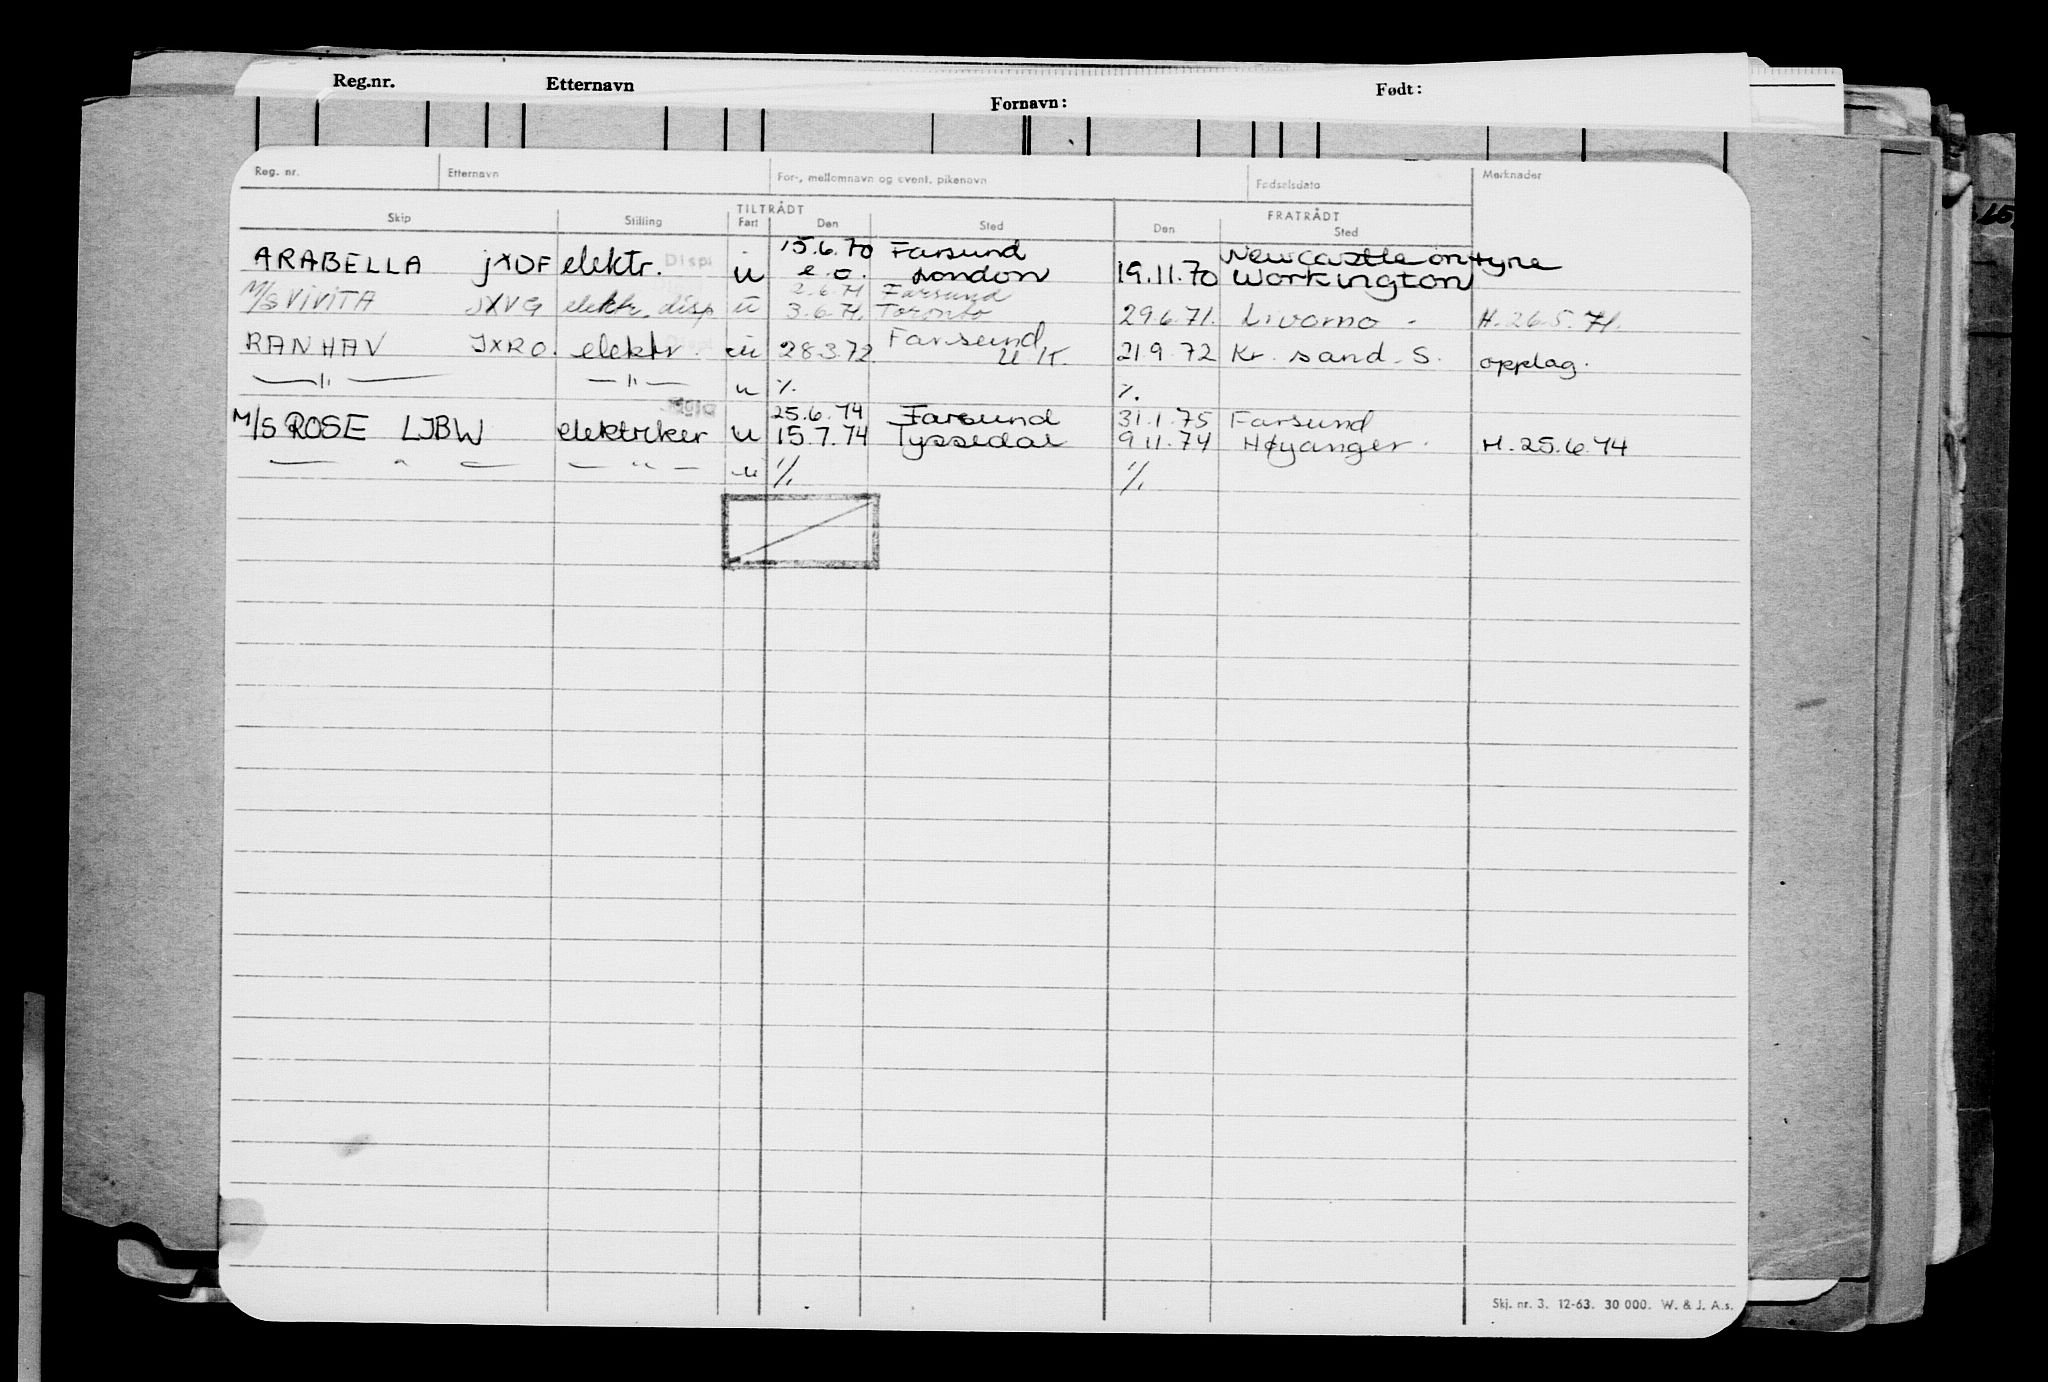 Reg.nr. Etternavn Fornavn: Født:
Reg. nr. Etternavn For-, mellomnavn og event. pikenavn Fødselsdato Merknader
TILTRÅDT FRATRÅDT
Skip Stilling Fart Den Sted Den Sted
15.6.70 Farsund Newcastle on tyne
ARABELLA JXDF elektr. Disp u e.o. London 19.11.70 Workington
2.6.71 Farsund
M/S ViViTA JXVG elektr. disp u 3.6.71. Toronto 29.6.71. Livorno - H. 26.5.71.
Farsund
RANHAV JXRO. elektr. u 28.3.72 U.K. 21.9.72 Kr. sand. S. opplag.
—"— —"— u %. %.
25.6.74 Farsund 31.1.75 Farsund
M/S ROSE LJBW elektriker u 15.7.74 Tyssedal 9.11.74 Høyanger. H. 25.6.74
— " — — " — u %. %.
Skj. nr. 3. 12-63. 30 000. W. & J. A.s.